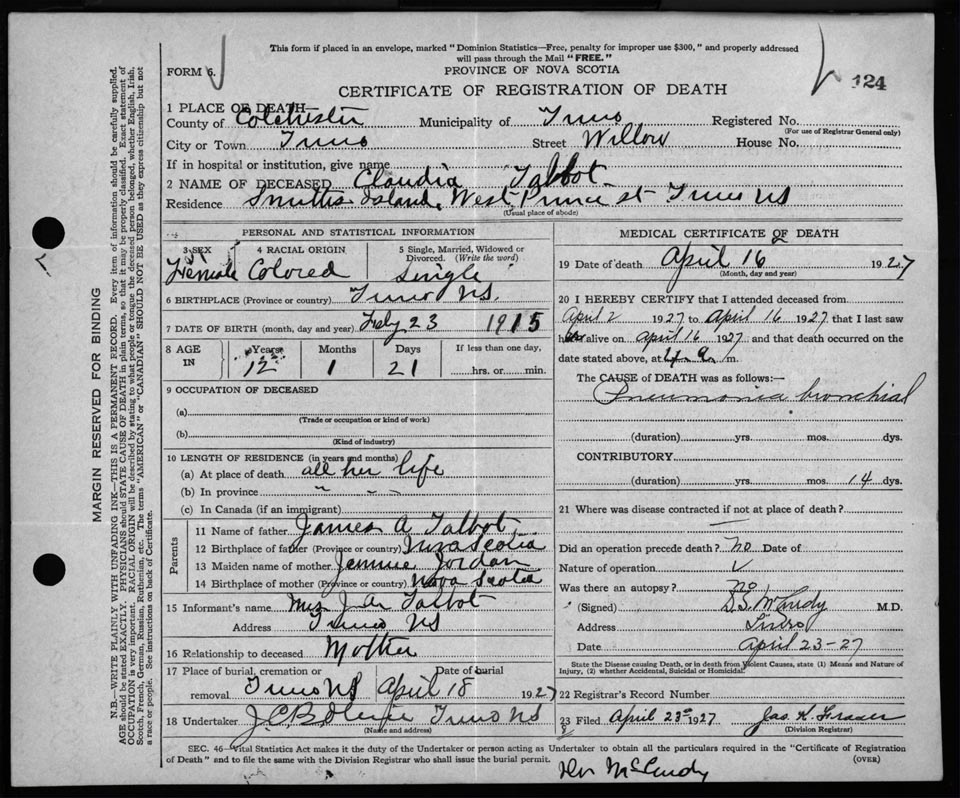 This form if placed in an envelope, marked "Dominion Statistics—Free, penalty for improper use $300," and properly addressed
will pass through the Mail "FREE."
FORM 6.
PROVINCE OF NOVA SCOTIA
124
CERTIFICATE OF REGISTRATION OF DEATH
1 PLACE OF DEATH
County of Colchester Municipality of Truro Registered No.
(For use of Registrar General only)
City or Town Truro Street Willow House No.
If in hospital or institution, give name
2 NAME OF DECEASED Claudia Talbot
Residence Smiths Island, West Prince st Truro NS
(Usual place of abode)
PERSONAL AND STATISTICAL INFORMATION
3 SEX 4 RACIAL ORIGIN 5 Single, Married, Widowed or
Divorced. (Write the word)
Female Colored Single
6 BIRTHPLACE (Province or country) Truro NS.
7 DATE OF BIRTH (month, day and year) Feby 23 1915
8 AGE IN Years Months Days If less than one day,
12 1 21 hrs. or min.
9 OCCUPATION OF DECEASED
(a)
(Trade or occupation or kind of work)
(b)
(Kind of industry)
10 LENGTH OF RESIDENCE (in years and months)
(a) At place of death all her life
(b) In province " " "
(c) In Canada (if an immigrant)
Parents
11 Name of father James A Talbot
12 Birthplace of father (Province or country) Nova Scotia
13 Maiden name of mother Jennie Jordan
14 Birthplace of mother (Province or country) Nova Scotia
15 Informant's name Mrs J. A. Talbot
Address Truro NS
16 Relationship to deceased Mother
17 Place of burial, cremation or Date of burial
removal Truro NS April 18 1927
18 Undertaker J.C.B. Truro NS
(Name and address)
MEDICAL CERTIFICATE OF DEATH
19 Date of death April 16 1927
(Month, day and year)
20 I HEREBY CERTIFY that I attended deceased from
April 2 1927 to April 16 1927 that I last saw
her alive on april 16 1927 and that death occurred on the
date stated above, at 4 a m.
The CAUSE of DEATH was as follows:—
Pneumonia bronchial
(duration) yrs. mos. dys.
CONTRIBUTORY
(duration) yrs. mos. 14 dys.
21 Where was disease contracted if not at place of death?
Did an operation precede death? no Date of
Nature of operation
Was there an autopsy? no
(Signed) McCurdy M.D.
Address Truro
Date April 23-27
State the Disease causing Death, or in death from Violent Causes, state (1) Means and Nature of
Injury, (2) whether Accidental, Suicidal or Homicidal.
22 Registrar's Record Number
23 Filed April 23d 1927 Jas. K. Fraser
(Division Registrar)
SEC. 46—Vital Statistics Act makes it the duty of the Undertaker or person acting as Undertaker to obtain all the particulars required in the "Certificate of Registration
of Death" and to file the same with the Division Registrar who shall issue the burial permit.
(OVER)
Dr McCurdy
MARGIN RESERVED FOR BINDING
N.B.—WRITE PLAINLY WITH UNFADING INK—THIS IS A PERMANENT RECORD. Every item of information should be carefully supplied.
AGE should be stated EXACTLY. PHYSICIANS should STATE CAUSE OF DEATH in plain terms, so that it may be properly classified. Exact statement of
OCCUPATION is very important. RACIAL ORIGIN will be described by stating to what people or tongue the deceased person belonged, whether English, Irish,
Scotch, French, German, Russian, Ruthenian, etc. The terms "AMERICAN" or "CANADIAN" SHOULD NOT BE USED as they express citizenship but not
a race or people. See instructions on back of Certificate.